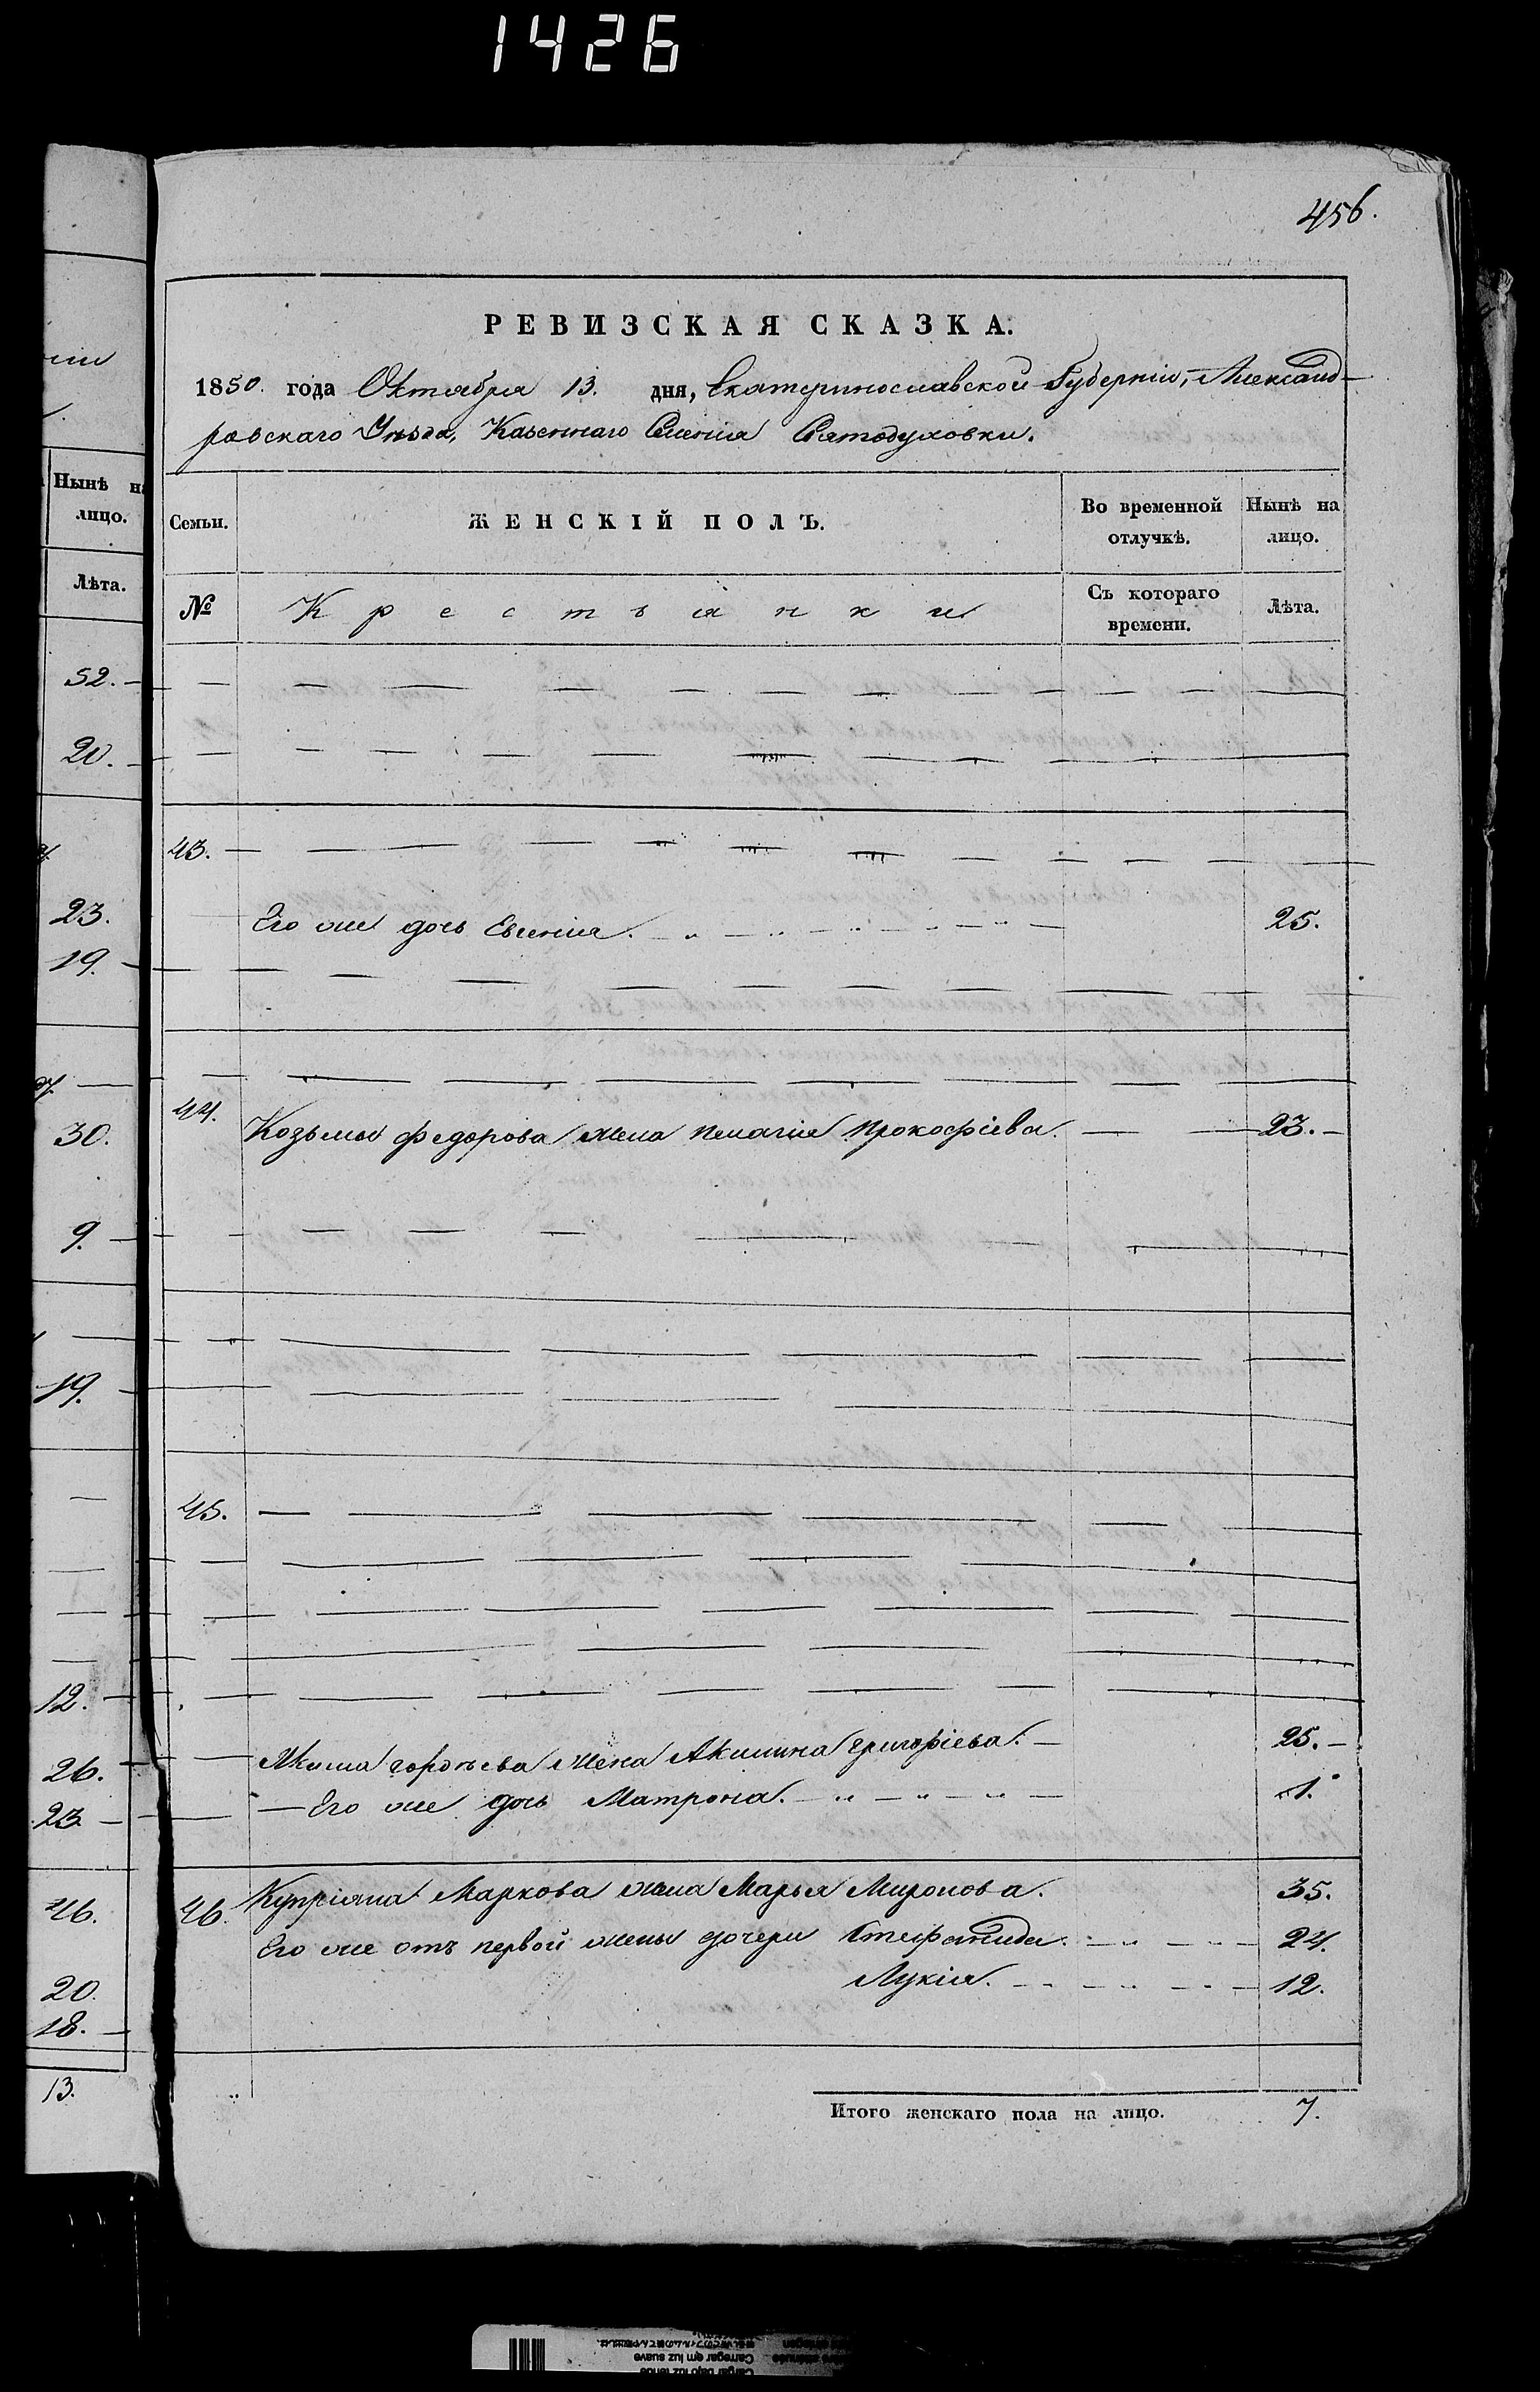 1426
456.
РЕВИЗСКАЯ СКАЗКА.
1850. года Октября 13. дня, Екатеринославской Губерніи, Александ-
ровскаго Уѣзда, Казеннаго Селенія Святодуховки.
Нынѣ на
лицо.
Лѣта.
Семьи.
ЖЕНСКІЙ ПОЛЪ.
Во временной
отлучкѣ.
Нынѣ на
лицо.
№
Крестьянки
Съ котораго
времени.
Лѣта.
52.
20.
43.
23.
Его же дочь Евгенія. 25.
19.
44.
30.
Козьмы Федорова жена Пелагія Прокофіева. 23.
9.
19.
45.
12.
26.
жена Акилина Григорьева. 25.
23
Его же дочь Матрона. 1.
46.
46. Купріяна Маркова жена Марья Миронова. 35.
Его же отъ первой жены дочери Стефанида. 24.
20.
Лукія. 12.
18.
13.
Итого женскаго пола на лицо. 7.
Carregar em luz suave